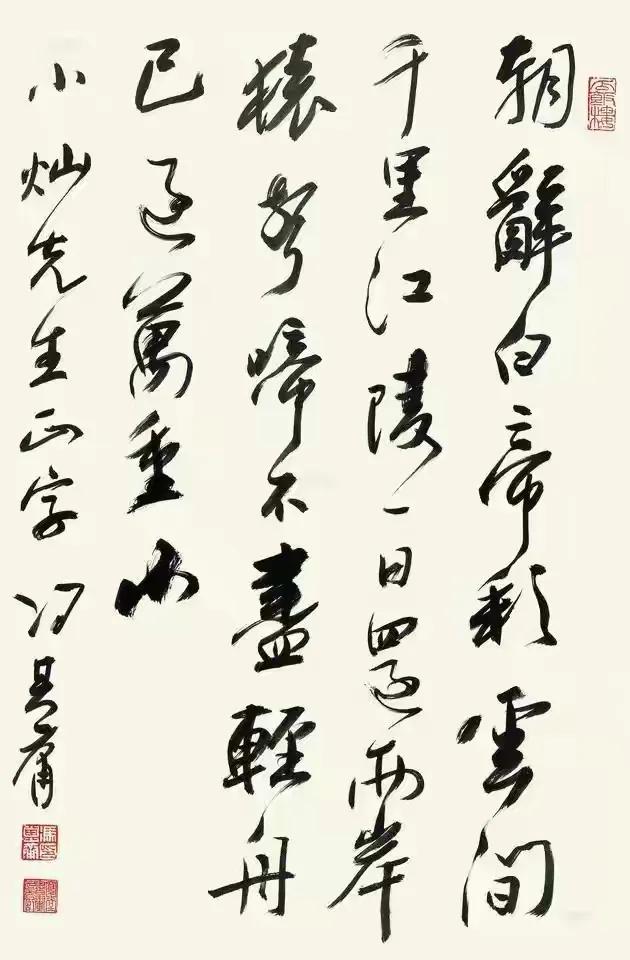 朝辭白帝彩雲間
千里江陵一日還兩岸
猿聲啼不盡輕舟
已過萬重山
小灿先生正字
冯其庸